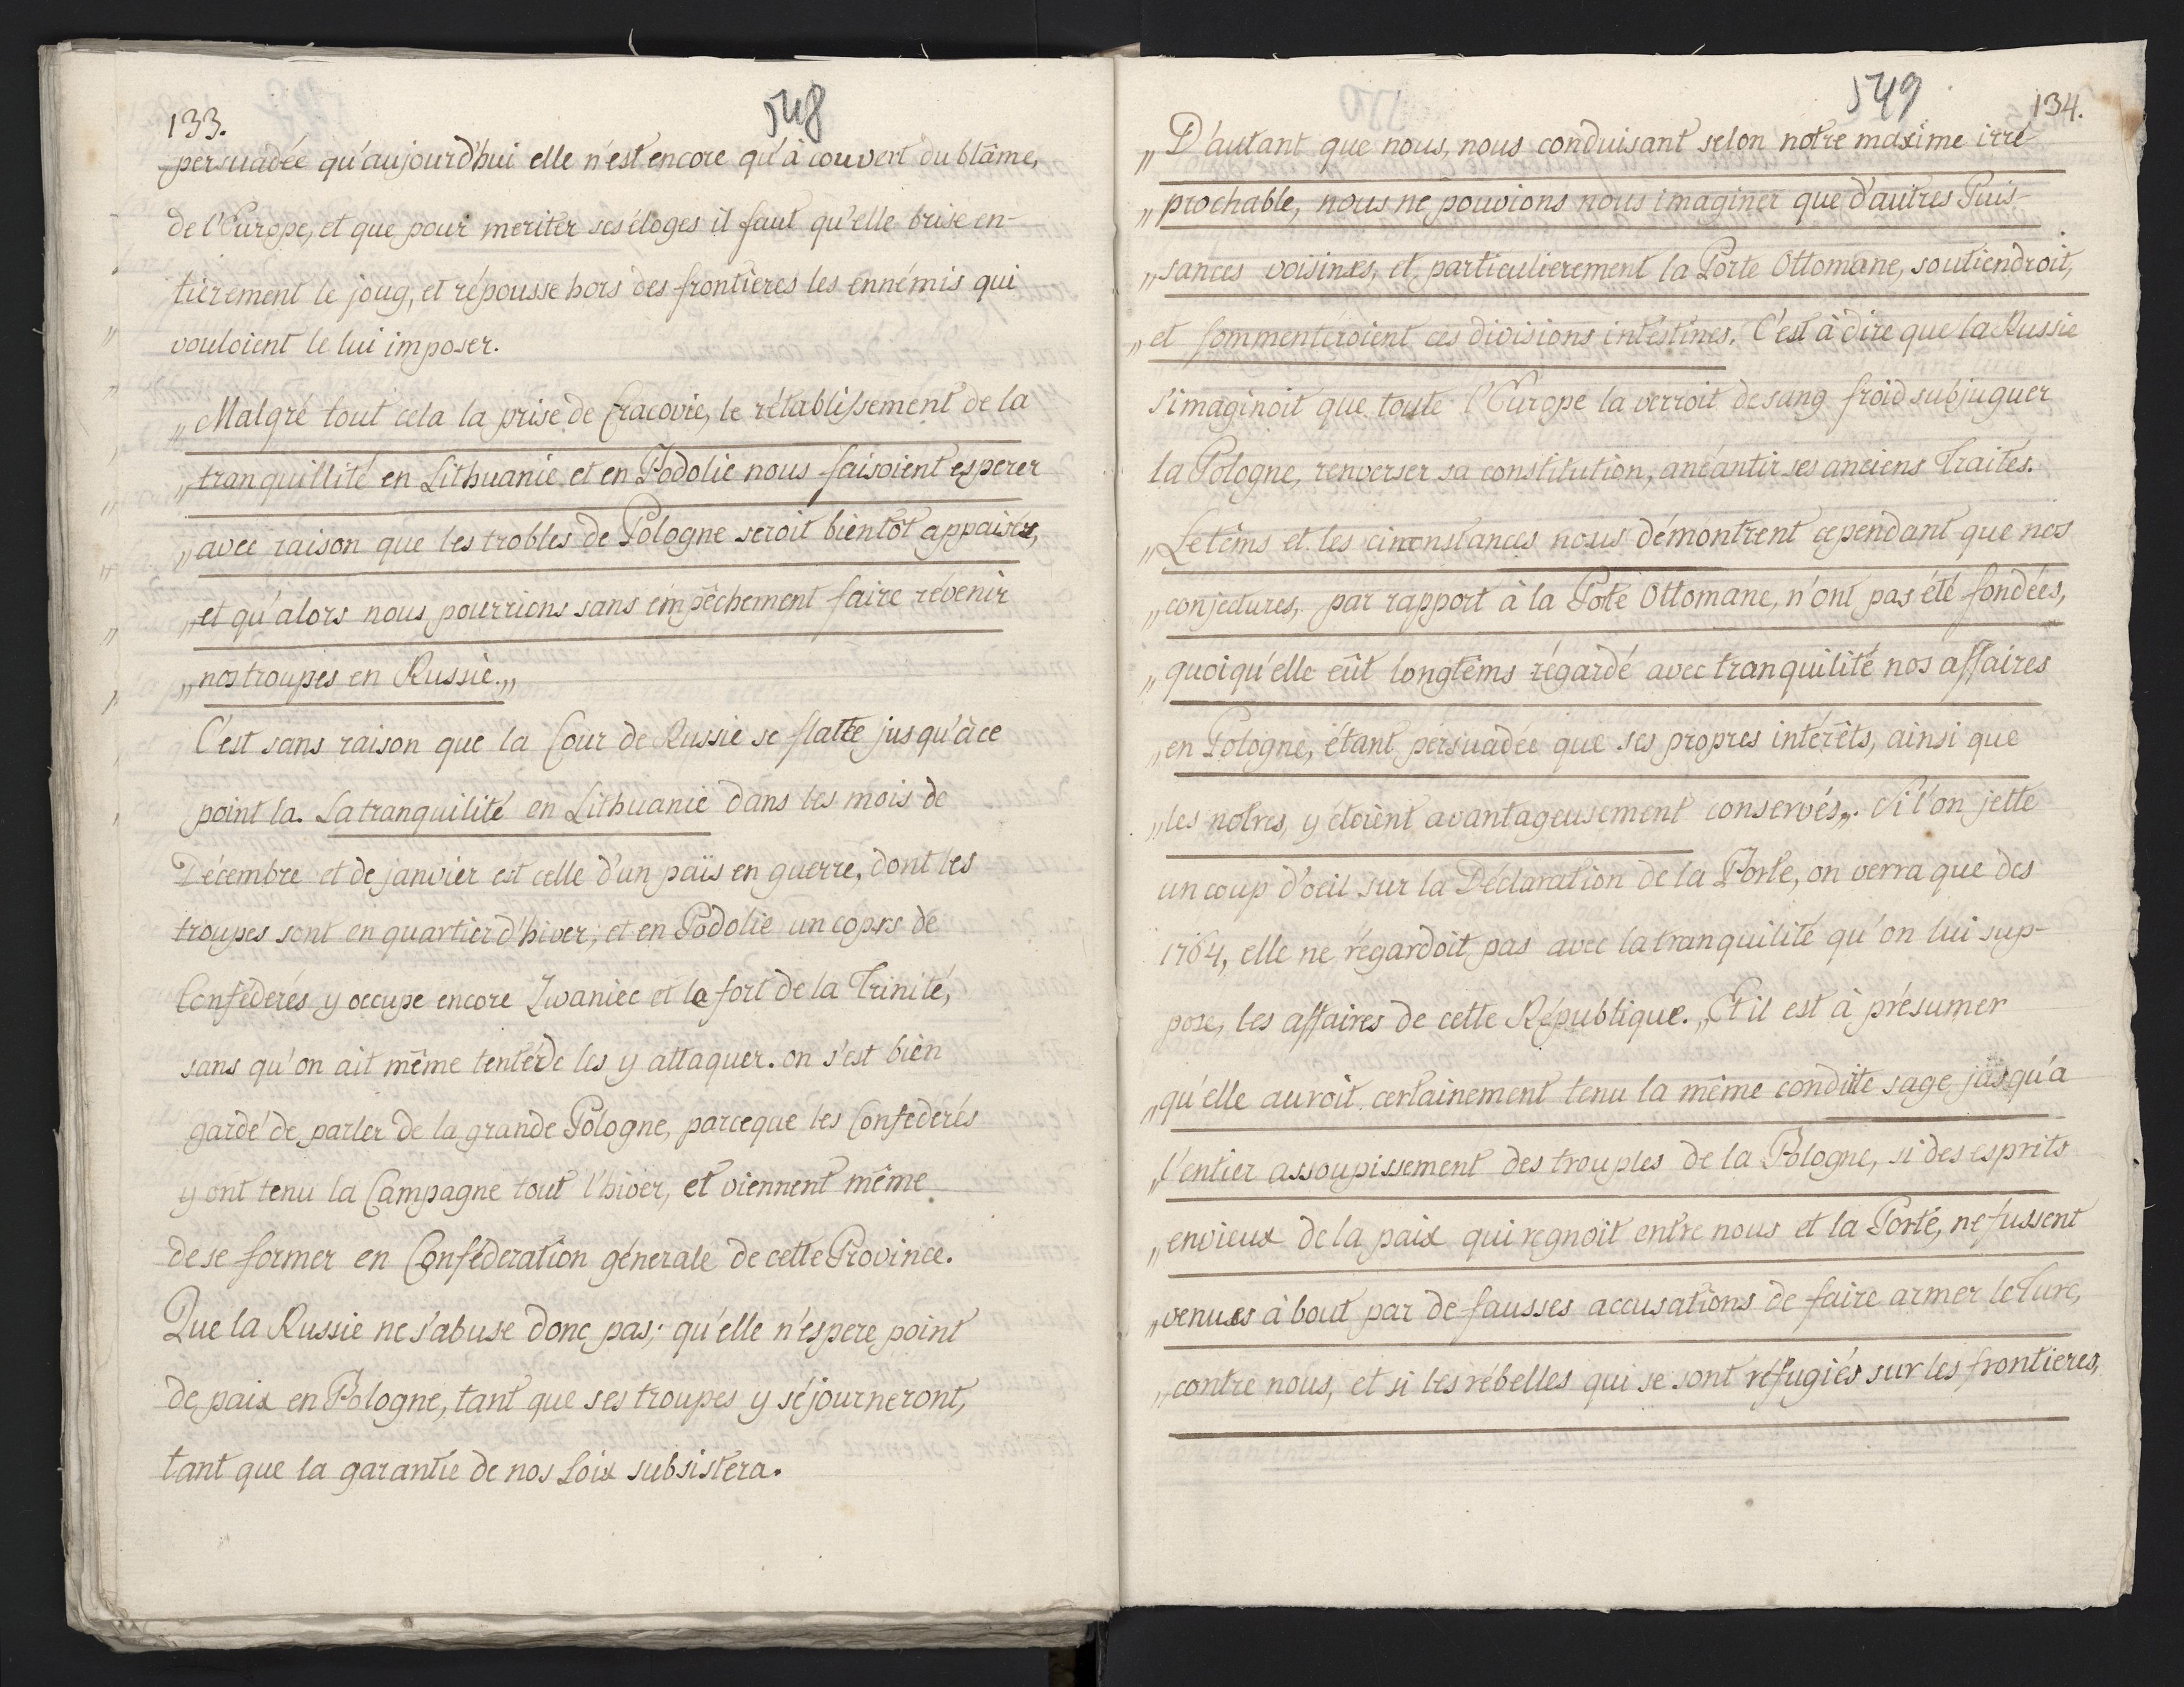 133.
548
persuadée qu'aujourd'hui elle n'est encore qu'à couvert du blâme,
de l'Europe, et que pour meriter ses éloges il faut qu'elle brise en-
tièrement le joug, et répousse hors des frontieres les ennémis qui
vouloient le lui imposer.
„Malgré tout cela la prise de Cracovie, le rétablissement de la
„tranquillité en Lithuanie et en Podolie nous faisoient esperer
„avec raison que les trobles de Pologne seroit bientôt appaisés,
„et qu'alors nous pourrions sans émpêchement faire révenir
„nos troupes en Russie.„
C'est sans raison que la Cour de Russie se flatte jusqu'à ce
point la. La tranquilité en Lithuanie dans les mois de
Décembre et de janvier est celle d'un païs en guerre, dont les
troupes sont en quartier d'hiver; et en Podolie un coprs de
Conféderés y occupe encore Zwaniec et le fort de la Trinité,
sans qu'on ait même tenté de les y attaquer. on s'est bien
gardé de parler de la grande Pologne, parceque les Confederés
y ont tenu la Campagne tout l'hiver, et viennent même
de se former en Conféderation génerale de cette Province.
Que la Russie ne s'abuse donc pas; qu'elle n'éspere point
de paix en Pologne, tant que ses troupes y séjourneront,
tant que la garantie de nos Loix subsistera.
549
134.
„D'autant que nous, nous conduisant selon notre maxime irré-
„prochable, nous ne pouvions nous imaginer que d'autres Puis-
„sances voisines, et particulierement la Porte Ottomane, soutiendroit,
„et fommenteroient ces divisions intestines. C'est à dire que la Russie
s'imaginoit que toute l'Europe la verroit de sang froid subjuguer
la Pologne, renverser sa constitution, anéantir ses anciens Traites.
„Le têms et les cinconstances nous démontrent cependant que nos
„conjectures, par rapport à la Pote Ottomane, n'ont pas été fondées,
„quoiqu'elle eût longtêms régardé avec tranquilité nos affaires
„en Pologne, étant pérsuadée que ses propres intérêts, ainsi que
„les notres, y étoient avantageusement conservés„. Si l'on jette
un coup d'oeil sur la Déclaration de la Porte, on verra que des
1764, elle ne régardoit pas avec la tranquilité qu'on lui sup-
pose, les affaires de cette République. „Et il est à présumer
„qu'elle auroit certainement tenu la même conduite sage jusqu'à
„l'entier assoupissement des trouples de la Pologne, si des esprits
„envieux de la paix qui regnoit entre nous et la Porte, ne fussent
„venues à bout par de fausses accusations de faire armer le Turc,
„contre nous, et si les rébelles qui se sont réfugiés sur les frontieres,